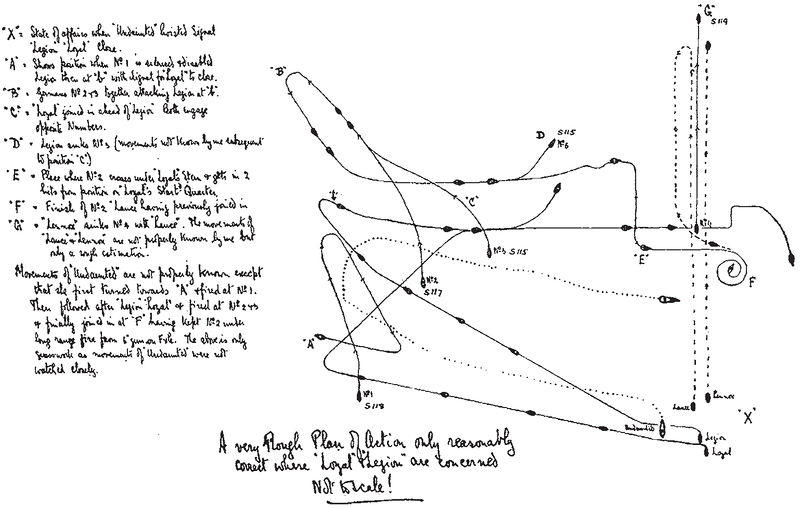 "X" = State of affairs when "Undaunted" hoisted Signal
"Legion" "Loyal" Close.
"A" = Shows position when No 1 is silenced & disabled
Legion then at "b" with signal for "Loyal" to close.
"B" = Germans No 2 & 3 together attacking Legion at "b".
"C" = "Loyal" joined in ahead of "Legion" Both engage
opposite Numbers.
"D" = Legion sinks No 3 (movements not known by me subsequent
to position "C")
"E" = Place where No 2 crosses under Loyal's Stern & gets in 2
hits from position on "Loyal's Starbd Quarter.
"F" = Finish of No 2 "Lance having previously joined in
"G" = "Lennox" sinks No 4 with "Lance". The movements of
"Lance & Lennox" are not properly known by me but
only a rough estimation.
Movements of "Undaunted" are not properly known except
that she first turned towards "A" & fired at No 1.
Then followed after "Legion" "Loyal" & fired at No 2 & 3
& finally joined in at "F" having kept No 2 under
long range fire from 6" gun on Fxle. The above is only
guesswork as movements of "Undaunted" were not
watched closely.
"G"
S119
"B"
D
S115
No 3
"b"
"C"
No 4
No 3 S115
"E"
F
No 2
S117
"A"
No 1
S118
Lance
Lennox
"X"
Undaunted
Legion
Loyal
A very Rough Plan of Action only reasonably
correct where "Loyal" & "Legion" are concerned
Not to scale!